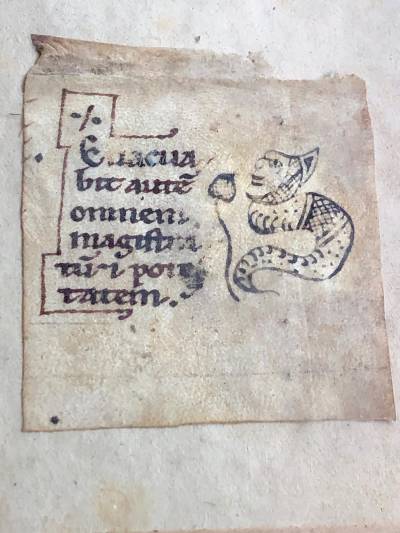 ·/·
Euacua
bit autē
omnem
magistra
tū· i· potes
tatem·